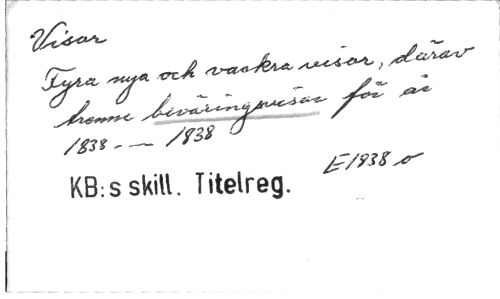 Visor
Fyra nya och vackra visor, därav
trenne beväringsvisor för år
1838 - — 1838
E1938 o
KB:s skill. Titelreg.